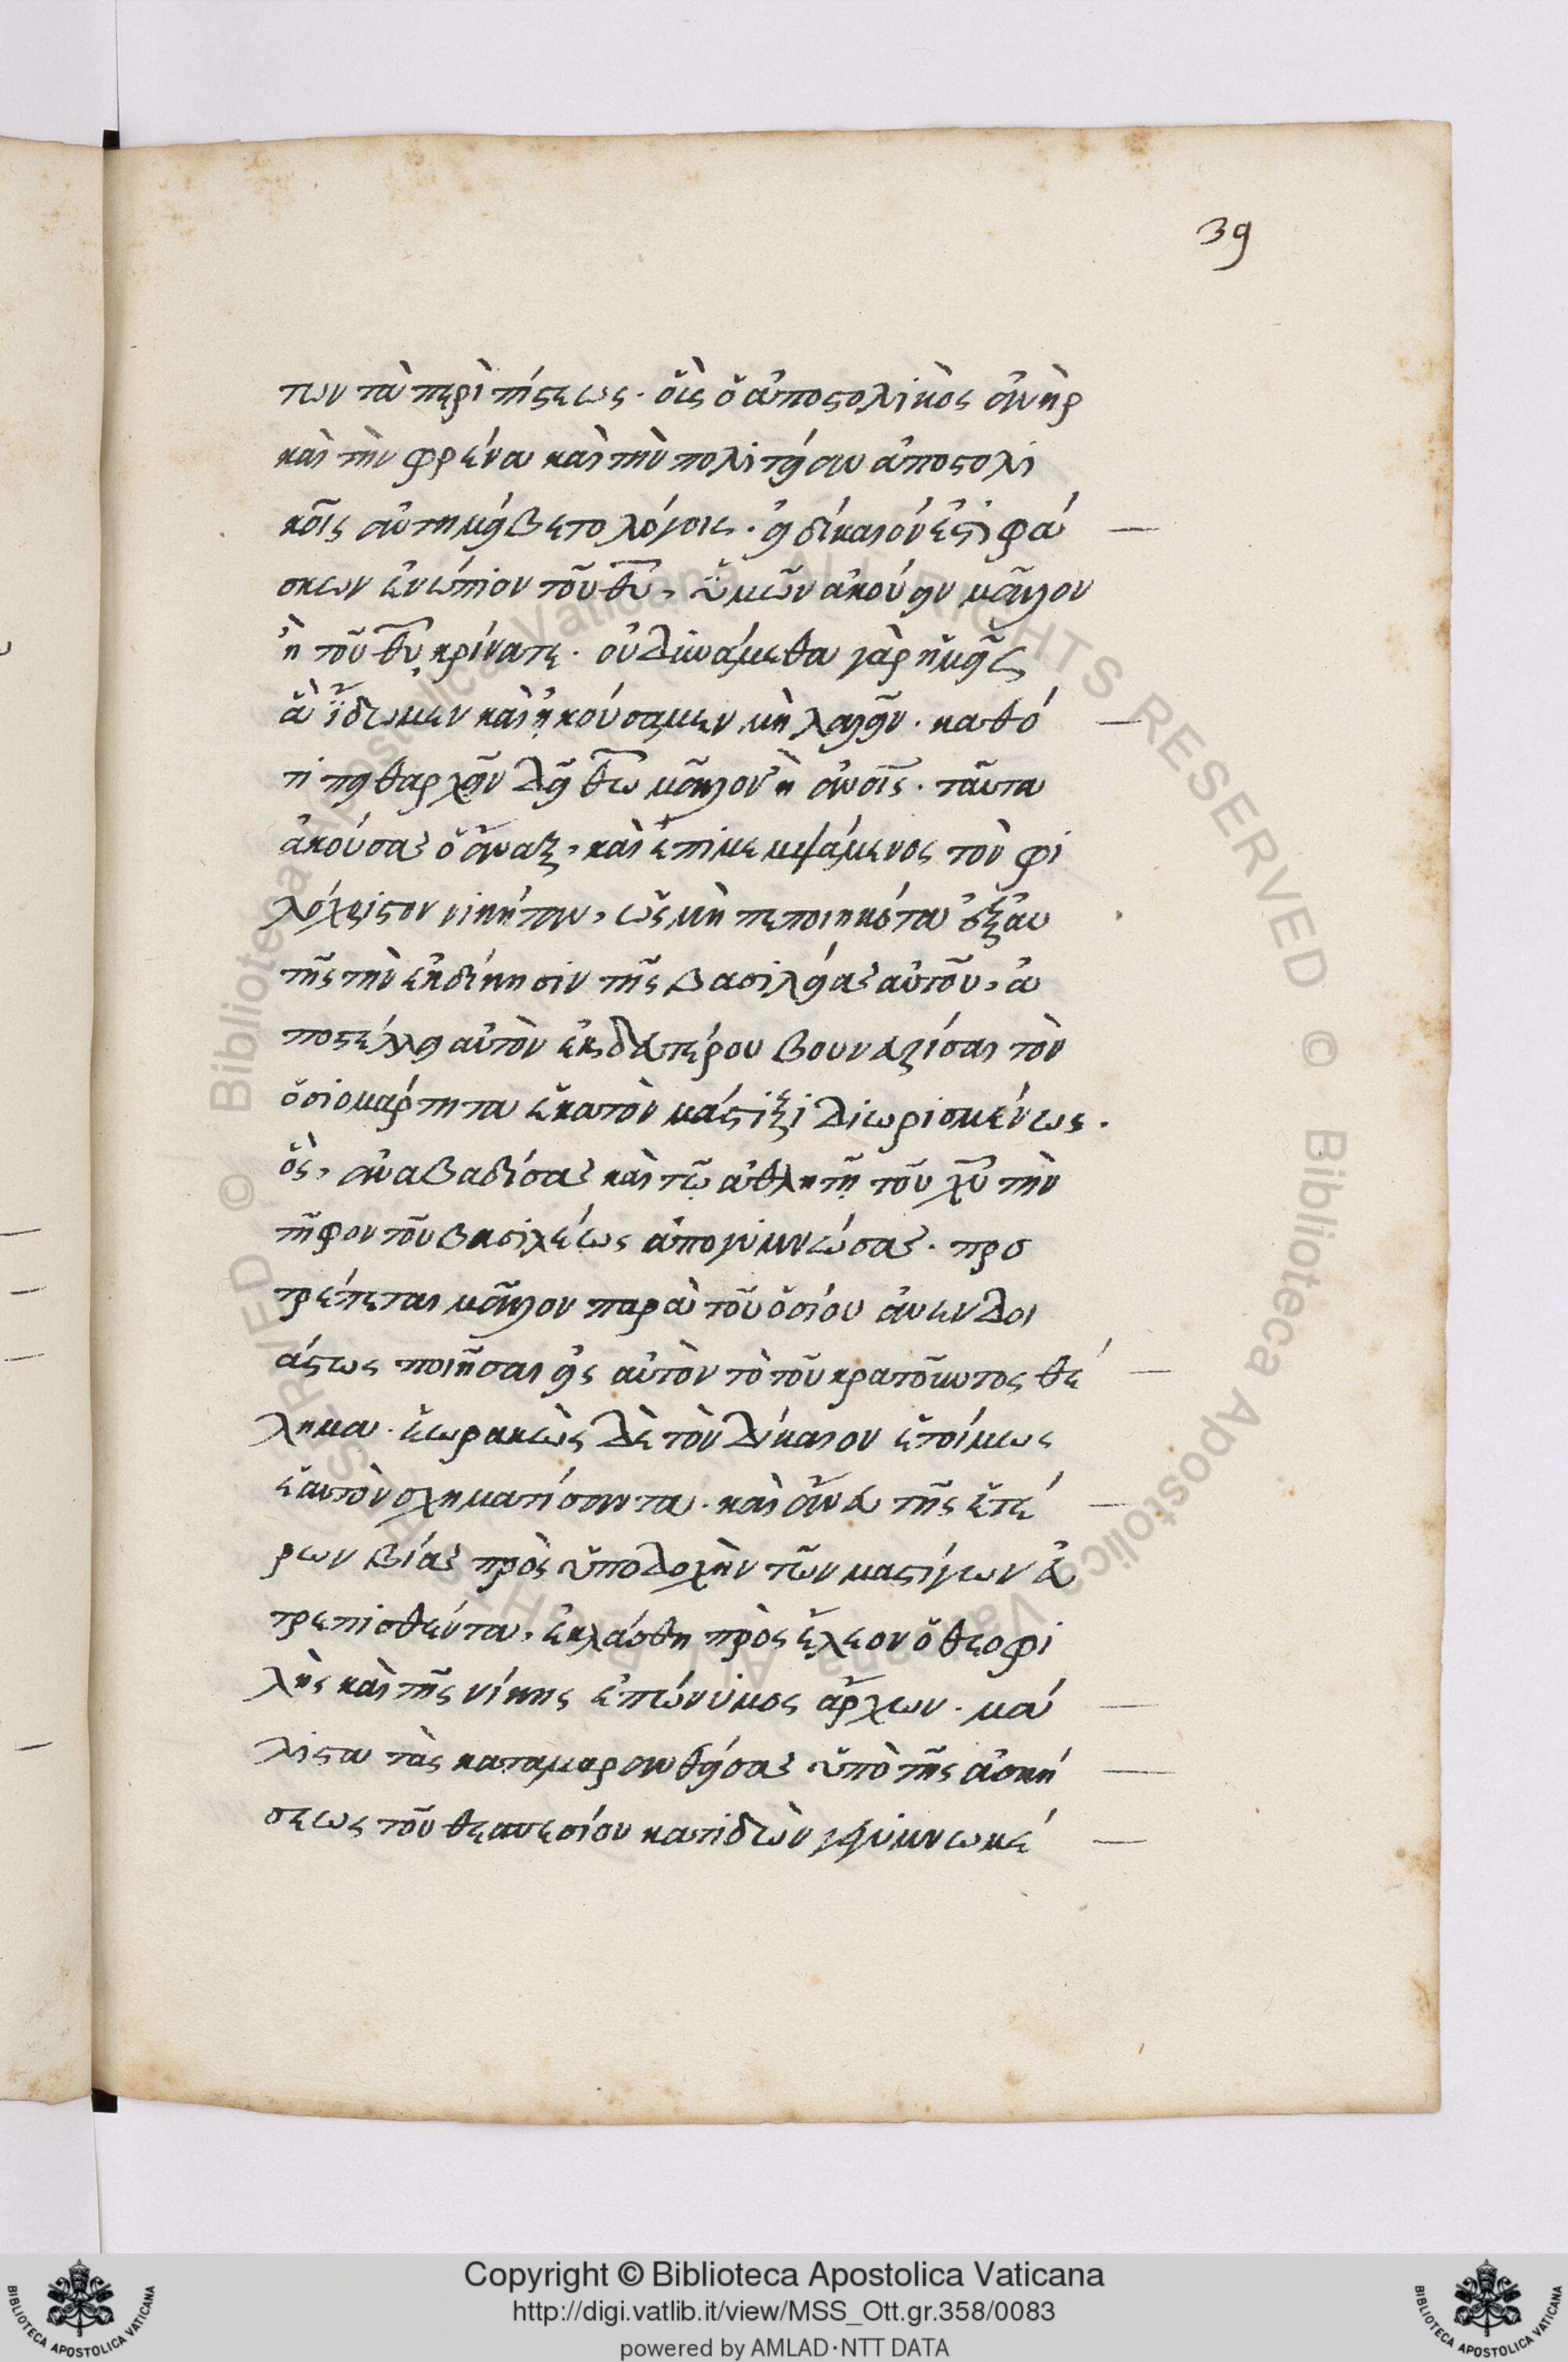 39
των τὰ περὶ πίστεως · οἷς ὁ ἀποστολικὸς ἀνὴρ
καὶ τὴν φρένα καὶ τὴν πολιτείαν ἀποστολι
κοῖς ἀντημείβετο λόγοις · εἰ δίκαιόν ἐστι φά
σκων ἐνώπιον τοῦ θυ, ὑμῶν ἀκούειν μᾶλλον
ἢ τοῦ θυ κρίνατε · οὐ δυνάμεθα γὰρ ἡμεῖς
ἃ ἴδωμεν καὶ ἠκούσαμεν μὴ λαλεῖν · καθό
τι πειθαρχεῖν δεῖ θω μᾶλλον ἢ ἀνοις · ταῦτα
ἀκούσας ὁ ἄναξ, καὶ ἐπιμεμψάμενος τὸν φι
λόχριστον νικήταν, ὡς μὴ πεποιηκότα ἐξ αυ
τῆς τὴν ἐκδίκησιν τῆς βασιλείας αὐτοῦ, ἀ
ποστέλλει αὐτὸν ἐκ δευτέρου βουναλίσαι τὸν
ὁσιομάρτητα ἑκατὸν μάστιξι διωρισμένως ·
ὃς, ἀναβαδίσας καὶ τῶ ἀθλητῆ τοῦ χυ τὴν
τῆφον τοῦ βασιλέως ἀπογυμνώσας · προ
τρέπεται μᾶλλον παρὰ τοῦ ὁσίου ἀνενδοι
άστως ποιῆσαι εἰς αὐτὸν τὸ τοῦ κρατοῦντος θέ
λημα · ἑωρακὼς δὲ τὸν δίκαιον ἑτοίμως
ἑαυτὸν σχηματίσαντα · καὶ ἄνευ τῆς ἑτέ
ρων βίας πρὸς ὑποδοχὴν τῶν μαστίγων εὐ
τρεπισθέντα, ἐκλάσθη πρὸς ἔλεον ὁ θεοφι
λὴς καὶ τῆς νίκης ἐπώνυμος ἄρχων · μά
λιστα τὰς καταμαρανθείσας ὑπὸ τῆς ἀσκή
σεως τοῦ θεσπεσίου κατιδὼν γεγυμνωμέ
Copyright © Biblioteca Apostolica Vaticana
http://digi.vatlib.it/view/MSS_Ott.gr.358/0083
powered by AMLAD·NTT DATA